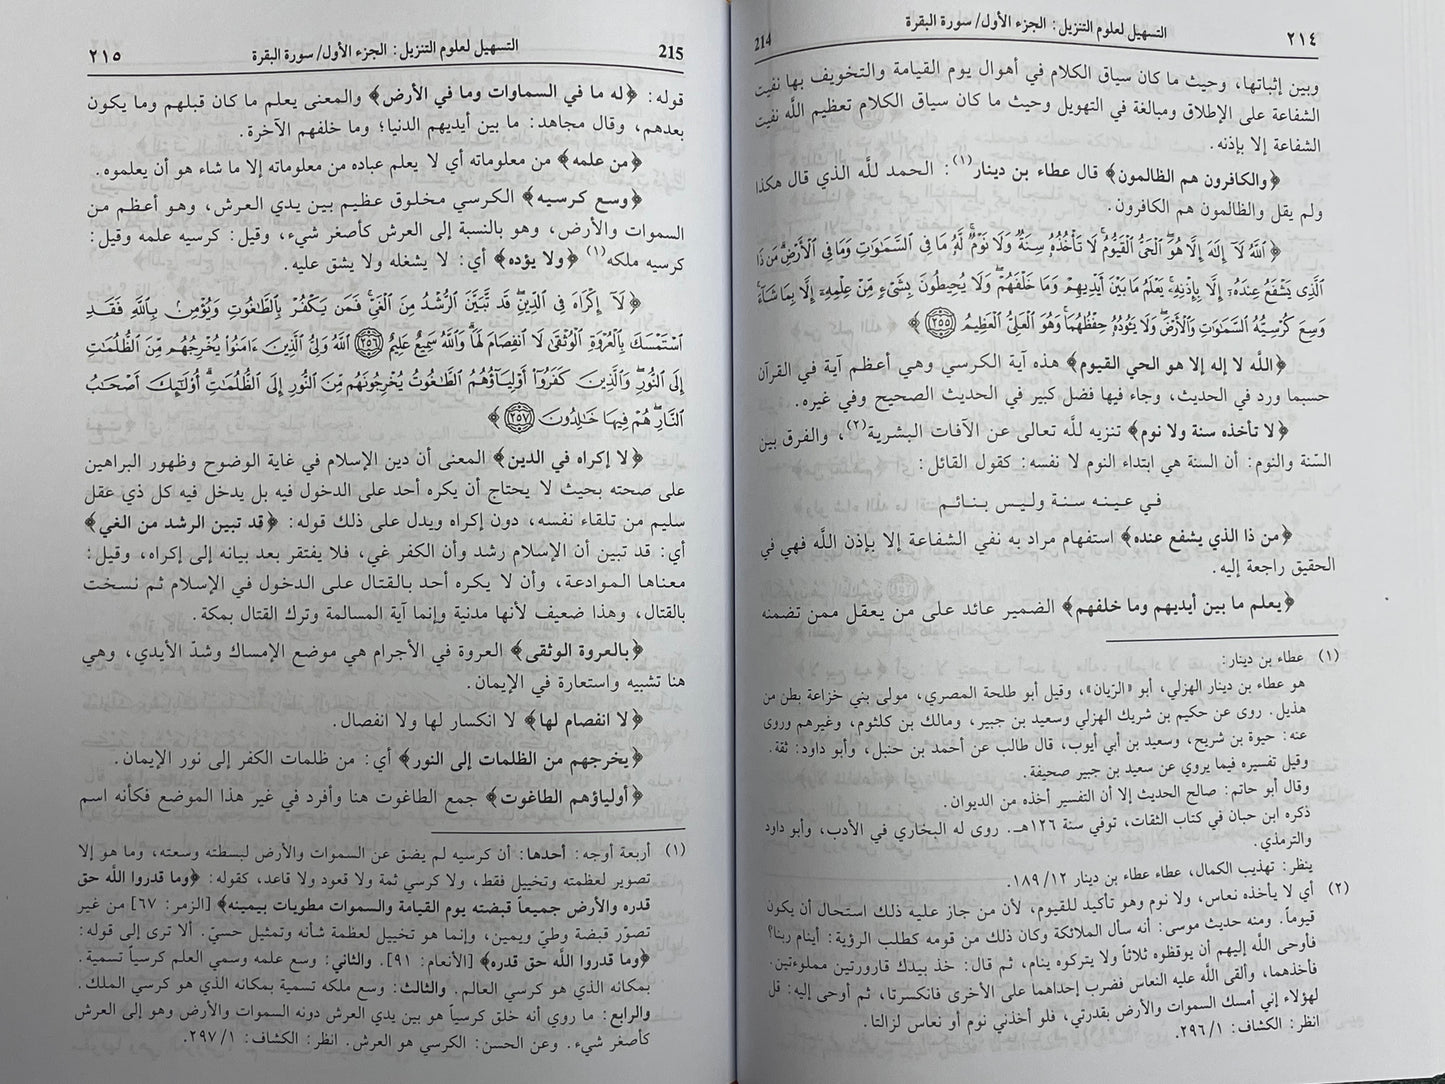 ٢١٤ التسهيل لعلوم التنزيل: الجزء الأول/ سورة البقرة 214
وبين إثباتها، وحيث ما كان سياق الكلام في أهوال يوم القيامة والتخويف بها نفيت
الشفاعة على الإطلاق ومبالغة في التهويل وحيث ما كان سياق الكلام تعظيم اللَّه نفيت
الشفاعة إلا بإذنه.
﴿والكافرون هم الظالمون﴾ قال عطاء بن دينار(١): الحمد للَّه الذي قال هكذا
ولم يقل والظالمون هم الكافرون.
﴿ٱللَّهُ لَآ إِلَٰهَ إِلَّا هُوَ ٱلْحَىُّ ٱلْقَيُّومُ ۚ لَا تَأْخُذُهُۥ سِنَةٌ وَلَا نَوْمٌ ۚ لَّهُۥ مَا فِى ٱلسَّمَٰوَٰتِ وَمَا فِى ٱلْأَرْضِ ۗ مَن ذَا
ٱلَّذِى يَشْفَعُ عِندَهُۥٓ إِلَّا بِإِذْنِهِۦ ۚ يَعْلَمُ مَا بَيْنَ أَيْدِيهِمْ وَمَا خَلْفَهُمْ ۖ وَلَا يُحِيطُونَ بِشَىْءٍ مِّنْ عِلْمِهِۦٓ إِلَّا بِمَا شَآءَ ۚ
وَسِعَ كُرْسِيُّهُ ٱلسَّمَٰوَٰتِ وَٱلْأَرْضَ ۖ وَلَا يَـُٔودُهُۥ حِفْظُهُمَا ۚ وَهُوَ ٱلْعَلِىُّ ٱلْعَظِيمُ ٢٥٥﴾
﴿اللَّه لا إله إلا هو الحي القيوم﴾ هذه آية الكرسي وهي أعظم آية في القرآن
حسبما ورد في الحديث، وجاء فيها فضل كبير في الحديث الصحيح وفي غيره.
﴿لا تأخذه سنة ولا نوم﴾ تنزيه للَّه تعالى عن الآفات البشرية(٢)، والفرق بين
السّنة والنوم: أن السنة هي ابتداء النوم لا نفسه: كقول القائل:
في عينه سنة وليس بنائم
﴿من ذا الذي يشفع عنده﴾ استفهام مراد به نفي الشفاعة إلا بإذن اللَّه فهي في
الحقيق راجعة إليه.
﴿يعلم ما بين أيديهم وما خلفهم﴾ الضمير عائد على من يعقل ممن تضمنه
(١) عطاء بن دينار:
هو عطاء بن دينار الهزلي، أبو «الرّيان»، وقيل أبو طلحة المصري، مولى بني خزاعة بطن من
هذيل. روى عن حكيم بن شريك الهزلي وسعيد بن جبير، ومالك بن كلثوم، وغيرهم وروى
عنه: حيوة بن شريح، وسعيد بن أبي أيوب، قال طالب عن أحمد بن حنبل، وأبو داود: ثقة.
وقيل تفسيره فيما يروي عن سعيد بن جبير صحيفة.
وقال أبو حاتم: صالح الحديث إلا أن التفسير أخذه من الديوان.
ذكره ابن حبان في كتاب الثقات، توفي سنة ١٢٦هـ. روى له البخاري في الأدب، وأبو داود
والترمذي.
ينظر: تهذيب الكمال، عطاء عطاء بن دينار ١٨٩/١٢.
(٢) أي لا يأخذه نعاس، ولا نوم وهو تأكيد للقيوم، لأن من جاز عليه ذلك استحال أن يكون
قيوماً. ومنه حديث موسى: أنه سأل الملائكة وكان ذلك من قومه كطلب الرؤية: أينام ربنا؟
فأوحى اللَّه إليهم أن يوقظوه ثلاثاً ولا يتركوه ينام، ثم قال: خذ بيدك قارورتين مملوءتين.
فأخذهما، وألقى اللَّه عليه النعاس فضرب إحداهما على الأخرى فانكسرتا، ثم أوحى إليه: قل
لهؤلاء إني أمسك السموات والأرض بقدرتي، فلو أخذني نوم أو نعاس لزالتا.
انظر: الكشاف: ٢٩٦/١.
215 التسهيل لعلوم التنزيل: الجزء الأول/ سورة البقرة ٢١٥
قوله: ﴿له ما في السماوات وما في الأرض﴾ والمعنى يعلم ما كان قبلهم وما يكون
بعدهم، وقال مجاهد: ما بين أيديهم الدنيا؛ وما خلفهم الآخرة.
﴿من علمه﴾ من معلوماته أي لا يعلم عباده من معلوماته إلا ما شاء هو أن يعلموه.
﴿وسع كرسيه﴾ الكرسي مخلوق عظيم بين يدي العرش، وهو أعظم من
السموات والأرض، وهو بالنسبة إلى العرش كأصغر شيء، وقيل: كرسيه علمه وقيل:
كرسيه ملكه(١) ﴿ولا يؤده﴾ أي: لا يشغله ولا يشق عليه.
﴿لَآ إِكْرَاهَ فِى ٱلدِّينِ ۖ قَد تَّبَيَّنَ ٱلرُّشْدُ مِنَ ٱلْغَىِّ ۚ فَمَن يَكْفُرْ بِٱلطَّٰغُوتِ وَيُؤْمِنۢ بِٱللَّهِ فَقَدِ
ٱسْتَمْسَكَ بِٱلْعُرْوَةِ ٱلْوُثْقَىٰ لَا ٱنفِصَامَ لَهَا ۗ وَٱللَّهُ سَمِيعٌ عَلِيمٌ ٢٥٦ ٱللَّهُ وَلِىُّ ٱلَّذِينَ ءَامَنُوا۟ يُخْرِجُهُم مِّنَ ٱلظُّلُمَٰتِ
إِلَى ٱلنُّورِ ۖ وَٱلَّذِينَ كَفَرُوٓا۟ أَوْلِيَآؤُهُمُ ٱلطَّٰغُوتُ يُخْرِجُونَهُم مِّنَ ٱلنُّورِ إِلَى ٱلظُّلُمَٰتِ ۗ أُو۟لَٰٓئِكَ أَصْحَٰبُ
ٱلنَّارِ ۖ هُمْ فِيهَا خَٰلِدُونَ ٢٥٧﴾
﴿لا إكراه في الدين﴾ المعنى أن دين الإسلام في غاية الوضوح وظهور البراهين
على صحته بحيث لا يحتاج أن يكره أحد على الدخول فيه بل يدخل فيه كل ذي عقل
سليم من تلقاء نفسه، دون إكراه ويدل على ذلك قوله: ﴿قد تبين الرشد من الغي﴾
أي: قد تبين أن الإسلام رشد وأن الكفر غي، فلا يفتقر بعد بيانه إلى إكراه، وقيل:
معناها الموادعة، وأن لا يكره أحد بالقتال على الدخول في الإسلام ثم نسخت
بالقتال، وهذا ضعيف لأنها مدنية وإنما آية المسالمة وترك القتال بمكة.
﴿بالعروة الوثقى﴾ العروة في الأجرام هي موضع الإمساك وشدّ الأيدي، وهي
هنا تشبيه واستعارة في الإيمان.
﴿لا انفصام لها﴾ لا انكسار لها ولا انفصال.
﴿يخرجهم من الظلمات إلى النور﴾ أي: من ظلمات الكفر إلى نور الإيمان.
﴿أولياؤهم الطاغوت﴾ جمع الطاغوت هنا وأفرد في غير هذا الموضع فكأنه اسم
(١) أربعة أوجه: أحدها: أن كرسيه لم يضق عن السموات والأرض لبسطته وسعته، وما هو إلا
تصوير لعظمته وتخييل فقط، ولا كرسي ثمة ولا قعود ولا قاعد، كقوله: ﴿وما قدروا اللَّه حق
قدره والأرض جميعاً قبضته يوم القيامة والسموات مطويات بيمينه﴾ [الزمر: ٦٧] من غير
تصوّر قبضة وطيّ ويمين، وإنما هو تخييل لعظمة شأنه وتمثيل حسيّ. ألا ترى إلى قوله:
﴿وما قدروا اللَّه حق قدره﴾ [الأنعام: ٩١]. والثاني: وسع علمه وسمي العلم كرسياً تسمية.
بمكانه الذي هو كرسي العالم. والثالث: وسع ملكه تسمية بمكانه الذي هو كرسي الملك.
والرابع: ما روي أنه خلق كرسياً هو بين يدي العرش دونه السموات والأرض وهو إلى العرش
كأصغر شيء. وعن الحسن: الكرسي هو العرش. انظر: الكشاف: ٢٩٧/١.